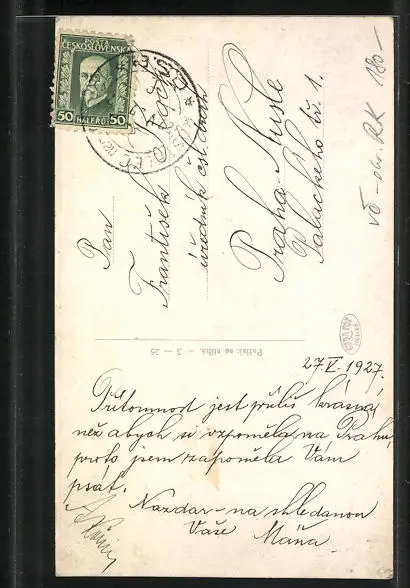 POŠTA
ČESKOSLOVENSKÁ
50 HALÉŘŮ 50
Pan
František
úředník čsl. drah
Praha-Nusle
Palackého tř. 1.
180-
Potisk se stíhá. — 3 — 25
27.V.1927.
Přítomnost jest příliš krásná,
než abych si vzpoměla na Prahu,
proto jsem zapoměla Vám
psát.
Nazdar - na shledanou
Vaše Máňa